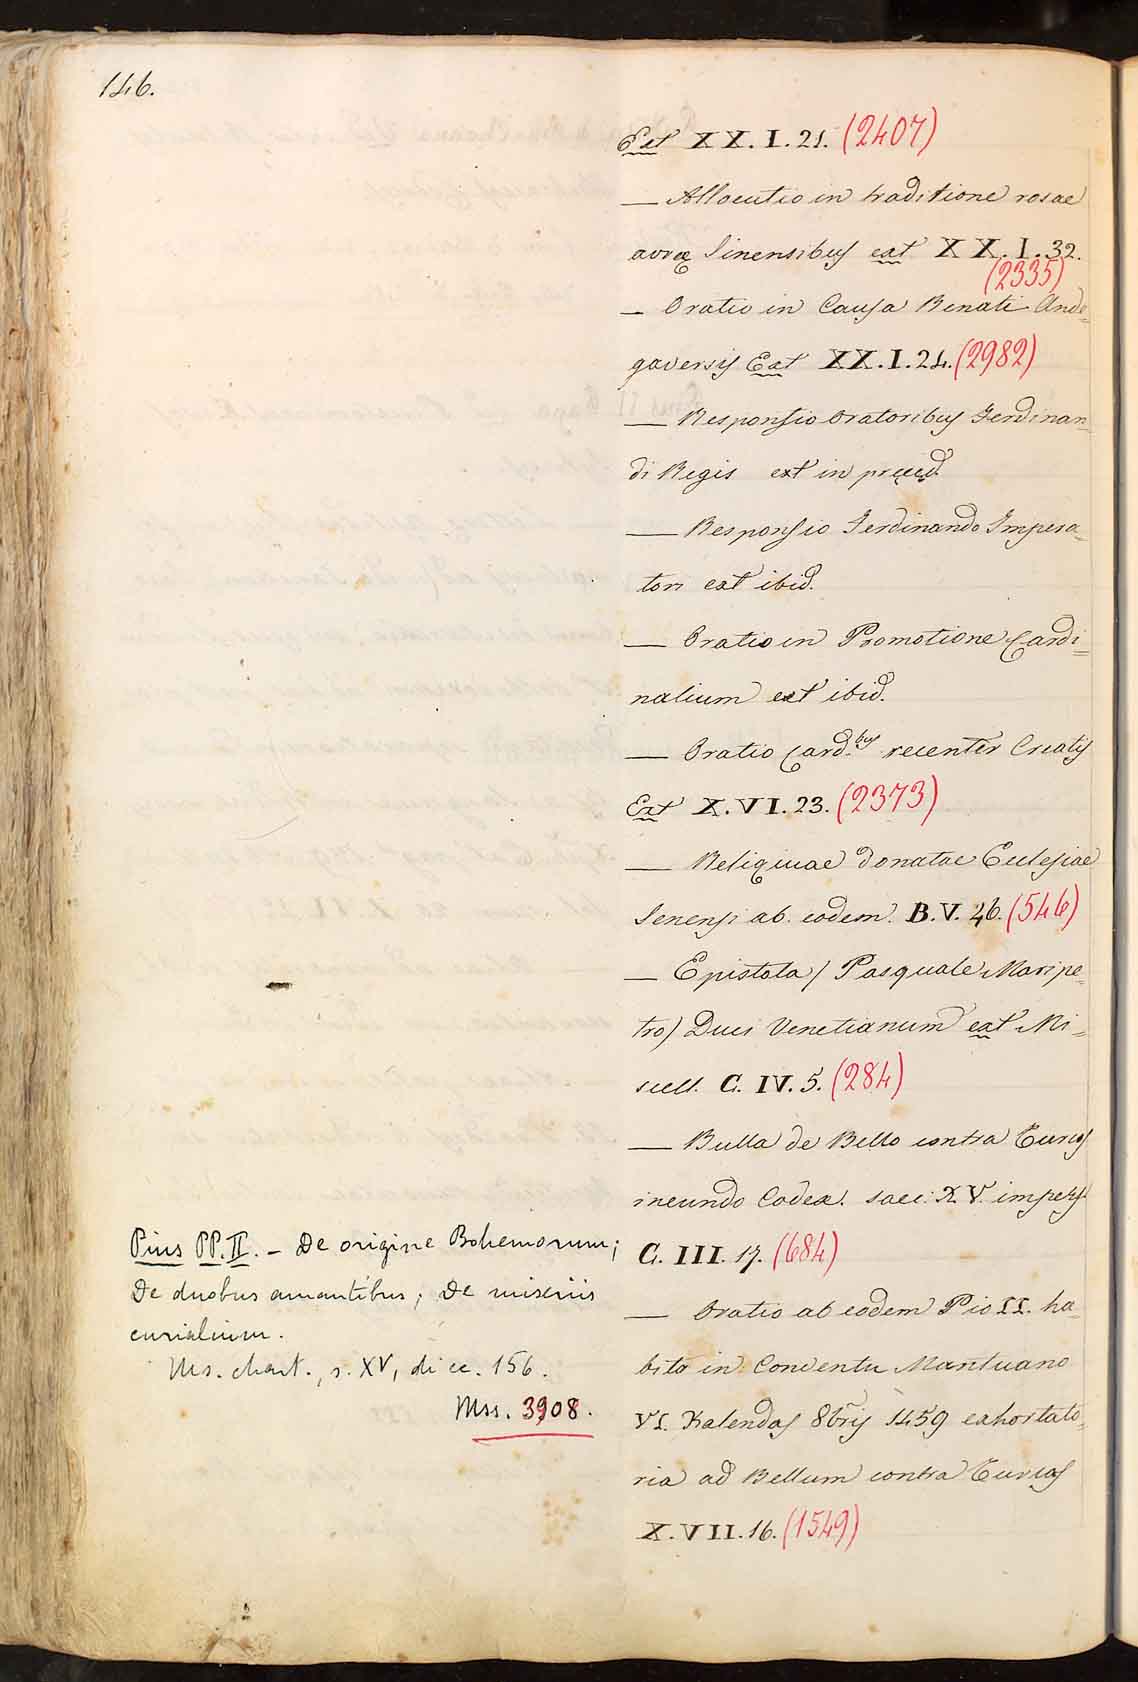 146.
Ext XX. I. 21. (2407)
— Allocutio in traditione rosae
aureæ Sinensibus ext XX. I. 32.
(2335)
— Oratio in Causa Renati Ande=
gavensis Ext XX. I. 24. (2982)
— Responsio Oratoribus Ferdinan=
di Regis ext in præced.
— Responsio Ferdinando Impera=
tori ext ibid.
— Oratio in Promotione Cardi=
nalium ext ibid.
— Oratio Card.bus recenter Creatis
Ext X. VI. 23. (2373)
— Reliqiuae donatae Eclesiae
Senensi ab eodem. B. V. 46. (546)
— Epistola / Pasquale Maripe=
tro) Duci Venetianum ext Mi=
scell. C. IV. 5. (284)
— Bulla de Bello contra Turcos
ineundo Codex. saec: XV. imperf.
C. III. 17. (684)
— Oratio ab eodem Pio II. ha=
bita in Conventu Mantuano
VI. Kalendas 8bris 1459 exhortato=
ria ad Bellum contra Turcas
X. VII. 16. (1549)
Pius PP. II. – De origine Bohemorum;
De duobus amantibus; De miseriis
curialium.
Ms. chart., s. XV, di cc. 156.
Mss. 3908.